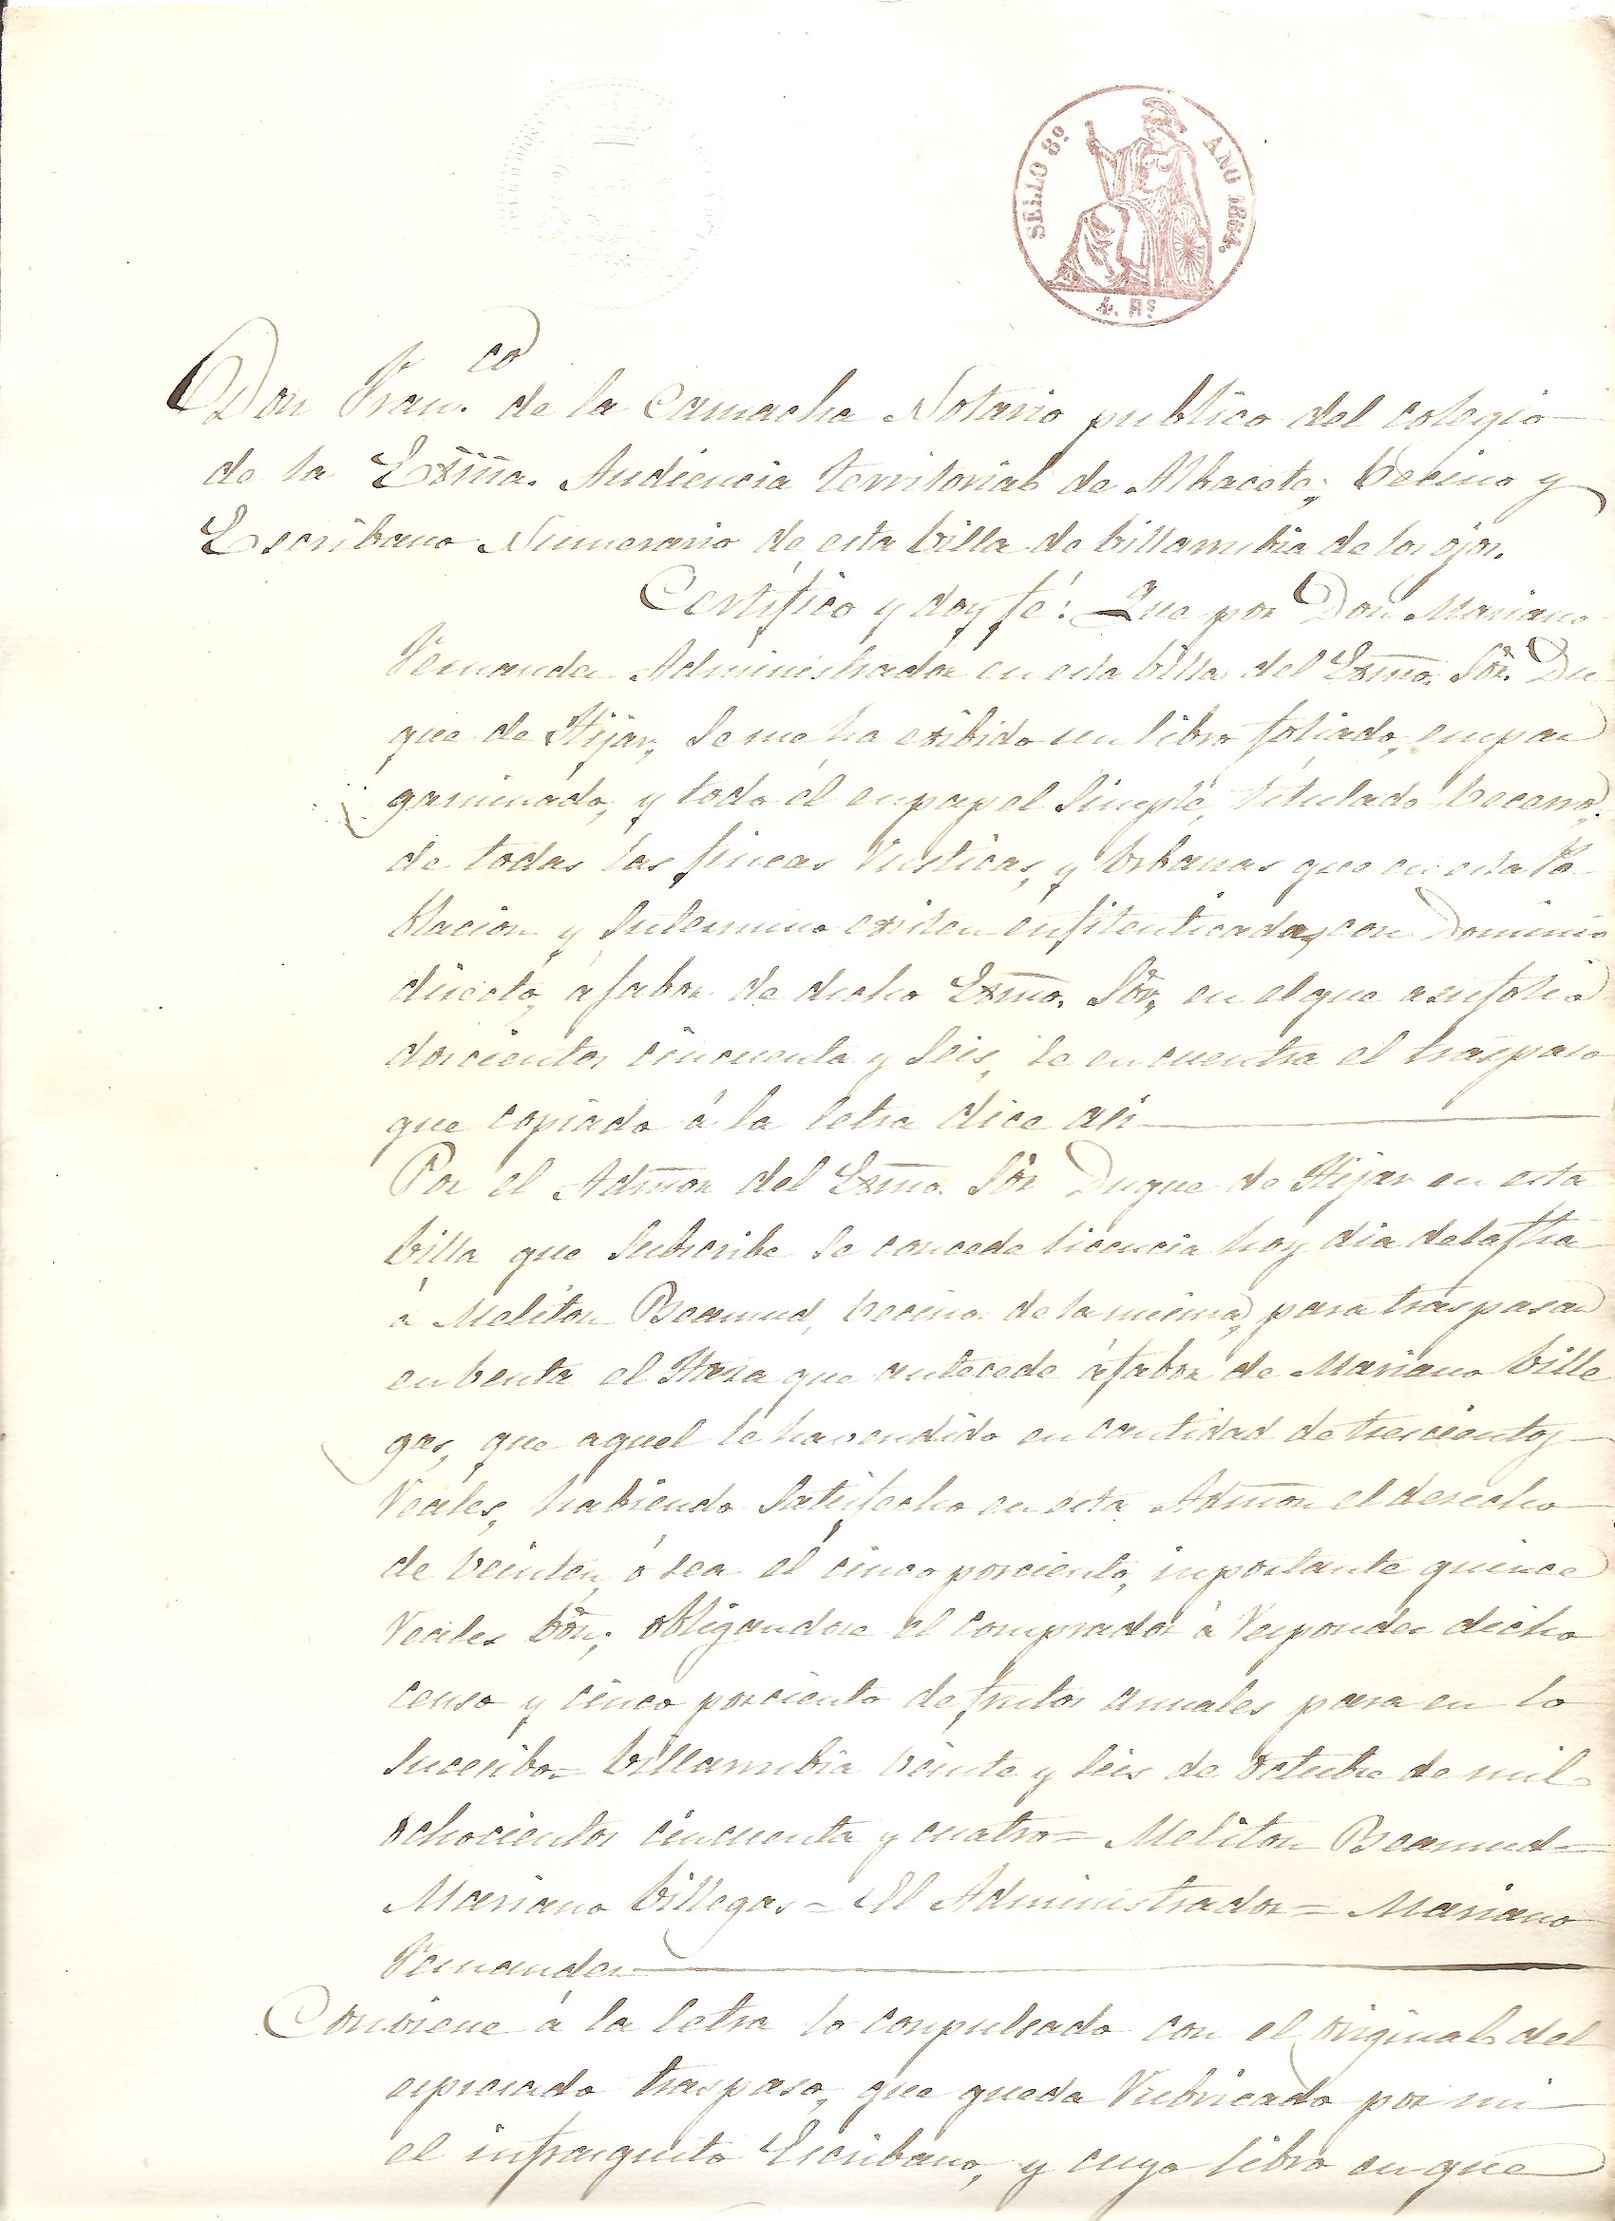 SELLO 8º AÑO 1864.
4. Rs
Don Fran.co de la Camacha Notario publico del colegio
de la Exma. Audiencia territorial de Albacete; becino y
Escribano Numerario de esta billa de billarrubia de los ojos.
Certifico y doy fé: Que por Don Mariano
Fernandez Administrador en esta billa del Exmo. Sor. Du
que de Hijar, se me ha exibido un libro foliado, empar
gaminado, y todo él en papel simple, titulado becerro,
de todas las fincas Rusticas, y Urbanas que en esta Po
blacion y su termino existen enfiteuticadas, con Dominio
directo, á fabor de dicho Exmo. Sor, en el que a su folio
doscientos cincuenta y seis, se encuentra el traspaso
que copiado á la letra dice asi
Por el Admor del Exmo. Sor Duque de Hijar en esta
billa que subscribe se concede licencia hoy dia de la fha
á Meliton Beamud, becino de la misma, para traspasar
en benta el Haza que antecede á fabor de Mariano bille
gas, que aquel le ha vendido en cantidad de trescientos
Reales, habiendo satisfecho en esta Admon el derecho
de beinten, ó sea el cinco por ciento, inportante quince
Reales bon; obligandose el comprador á Responder dicho
censo y cinco por ciento de frutos anuales para en lo
sucesibo = billarrubia beinte y seis de octubre de mil
ochocientos cincuenta y cuatro = Meliton Beamud =
Mariano billegas = El Administrador = Mariano
Fernandez
Conviene á la letra lo conpulsado con el original del
espresado traspaso, que queda Rubricado por mi
el infrasquito Escribano, y cuyo libro en que